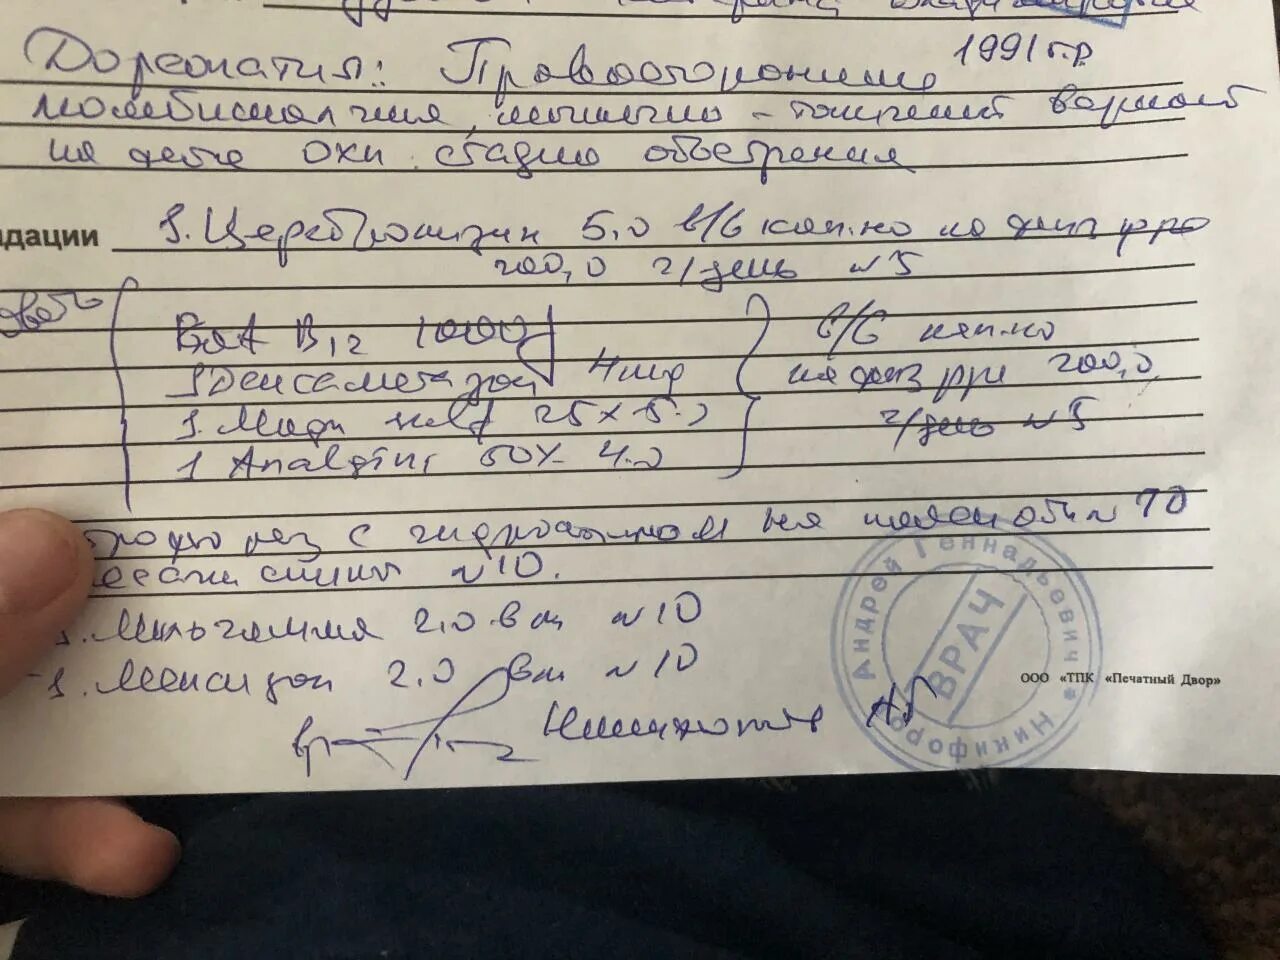 1991 г.р
Дорсопатия: Правосторонняя
люмбоишиалгия, мышечно - тонический вариант
на фоне ОХП. стадия обострения
ндации 1. Церебролизин 5,0 в/в кап.но на физ р-ре
200,0 ч/день №5
В12 1000
Дексаметазон 4 мг
25 х 5.0
1 Analgini 50% 4.0
в/в кап.но
на физ рре 200,0
ч/день №5
с гидрокортизоном на поясн обл №10
спины №10.
1. Мильгамма 2,0 вм №10
1. Мексидон 2.0 вм №10
вр
Никифоров АГ
Андрей Геннадьевич * Никифоров
ВРАЧ
ООО «ТПК «Печатный Двор»